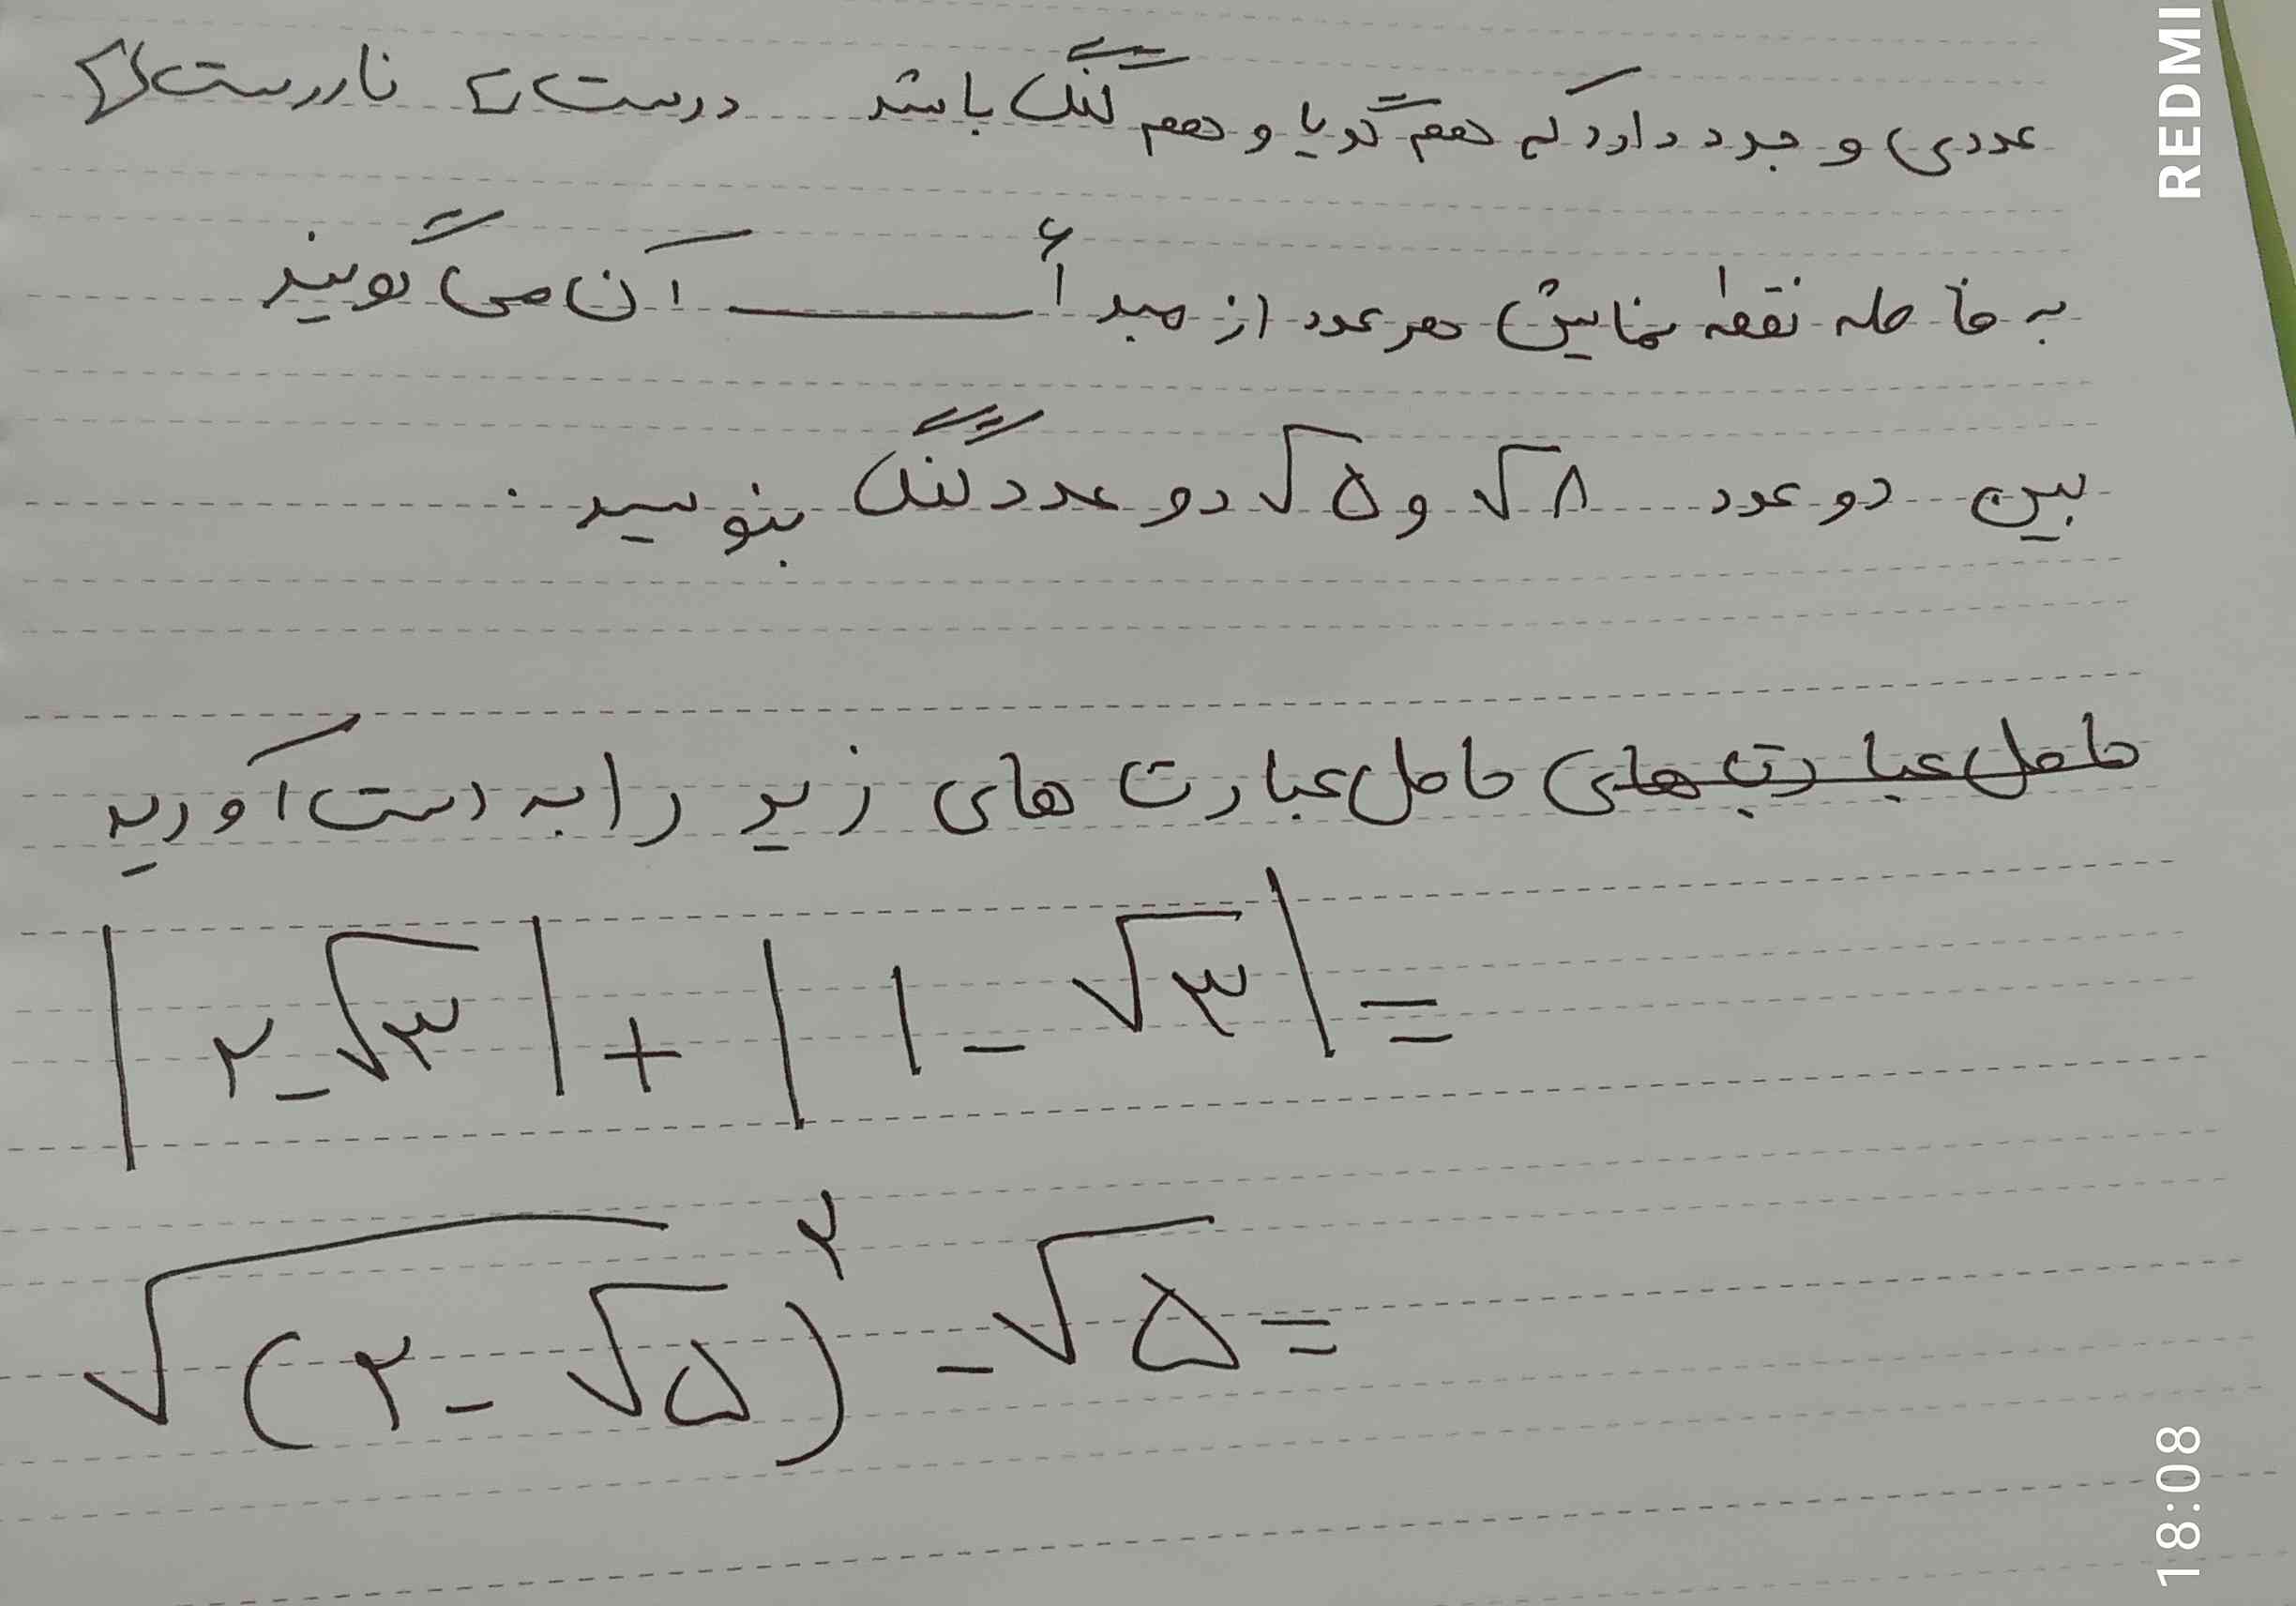 عددی وجود دارد که هم گویا و هم گنگ باشد درست نادرست
به فاصله نقطه نمایش هر عدد از مبدأ ــــــــ آن می گویند
بین دو عدد √۸ و √۵ دو عدد گنگ بنویسید.
حاصل عبارت های حاصل عبارت های زیر را به دست آورید
|۲-√۳| + |۱-√۳| =
√(۲-√۵)^۲ - √۵ =
REDMI
18:08